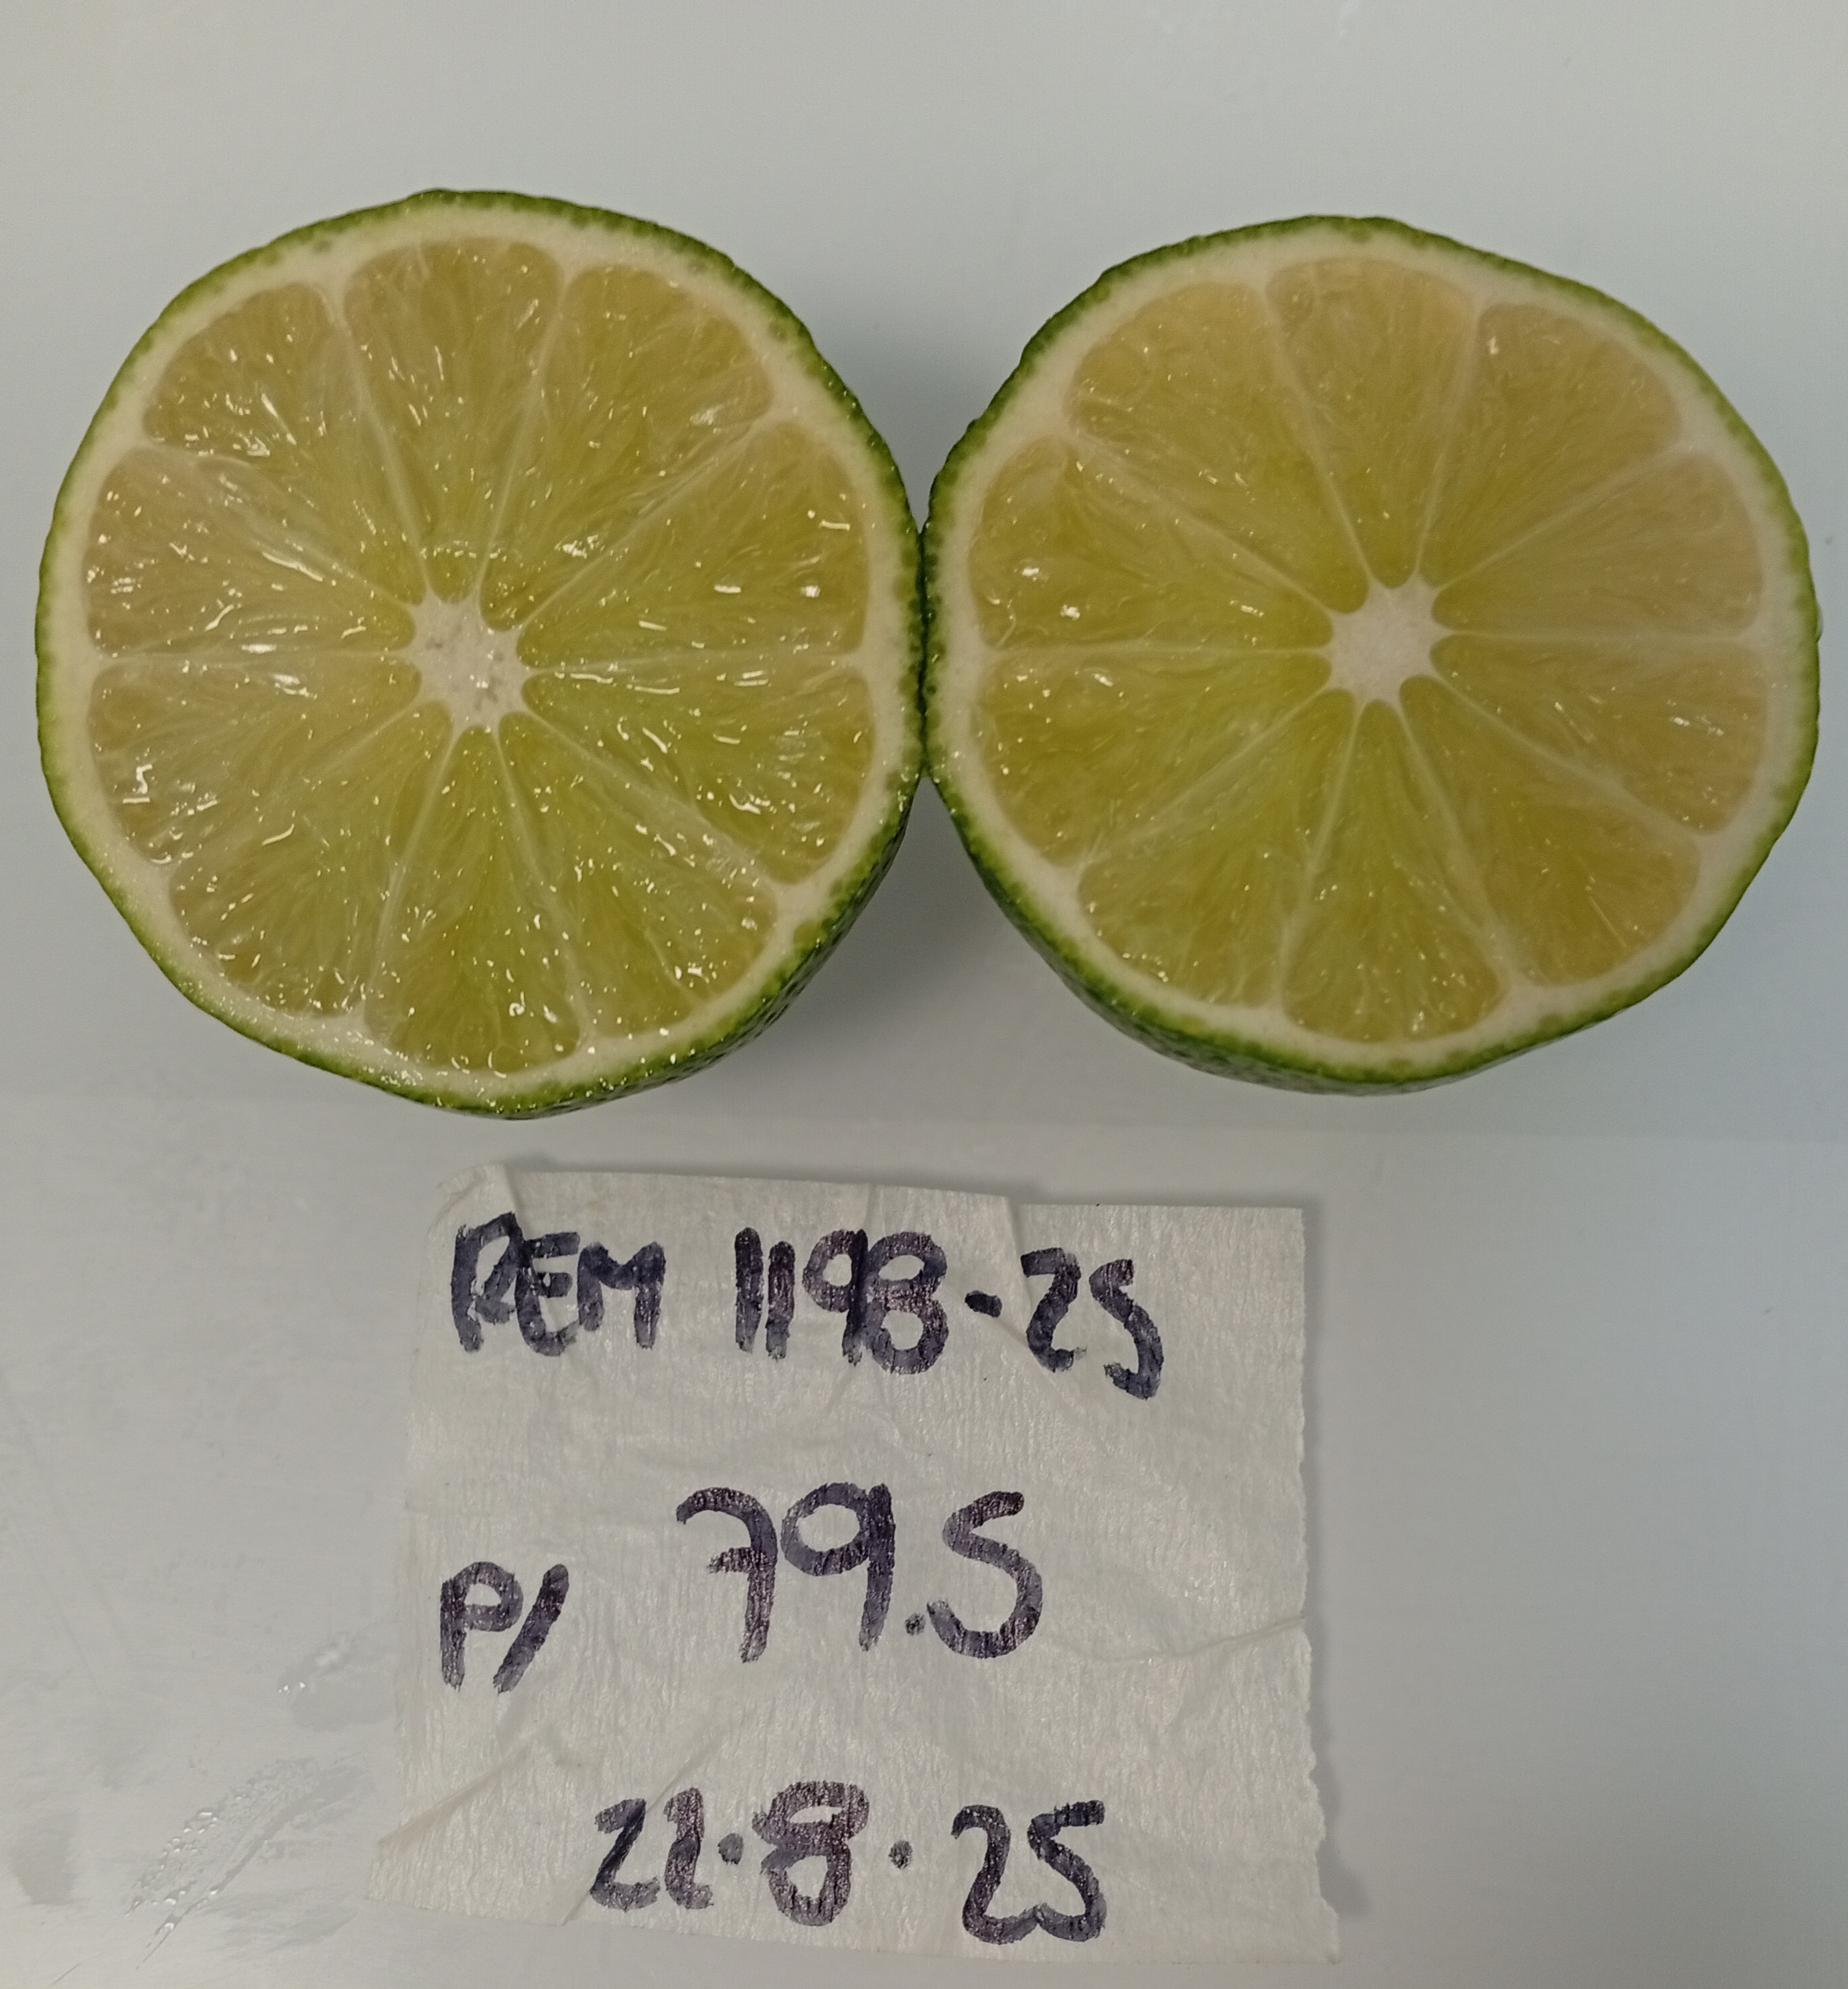 REM 1198-25
P/ 79.5
22.8.25